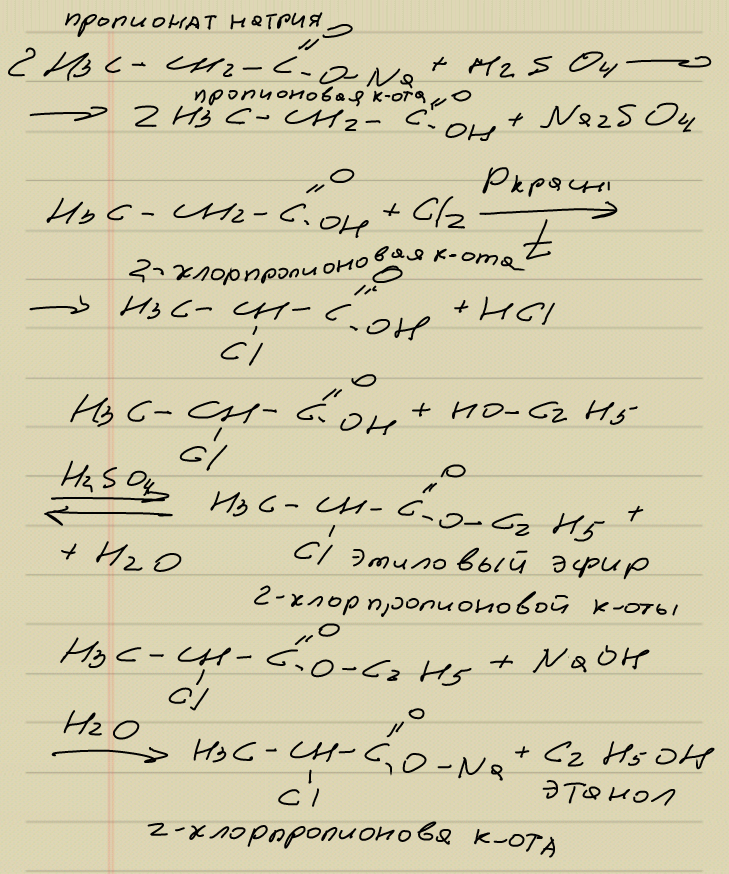 пропионат натрия
2 H3C - CH2 - C =O -O-Na + H2SO4 →
пропионовая к-ота
→ 2 H3C - CH2 - C =O -OH + Na2SO4
H3C - CH2 - C =O -OH + Cl2 P красн → t
2-хлорпропионовая к-ота
→ H3C - CH - C =O -OH + HCl
Cl
H3C - CH - C =O -OH + HO-C2H5
Cl
H2SO4 ⇄ H3C - CH - C =O -O-C2H5 +
+ H2O Cl этиловый эфир
2-хлорпропионовой к-оты
H3C - CH - C =O -O-C2H5 + NaOH
Cl
H2O → H3C - CH - C =O -O-Na + C2H5OH
Cl этанол
2-хлорпропионовая к-ота